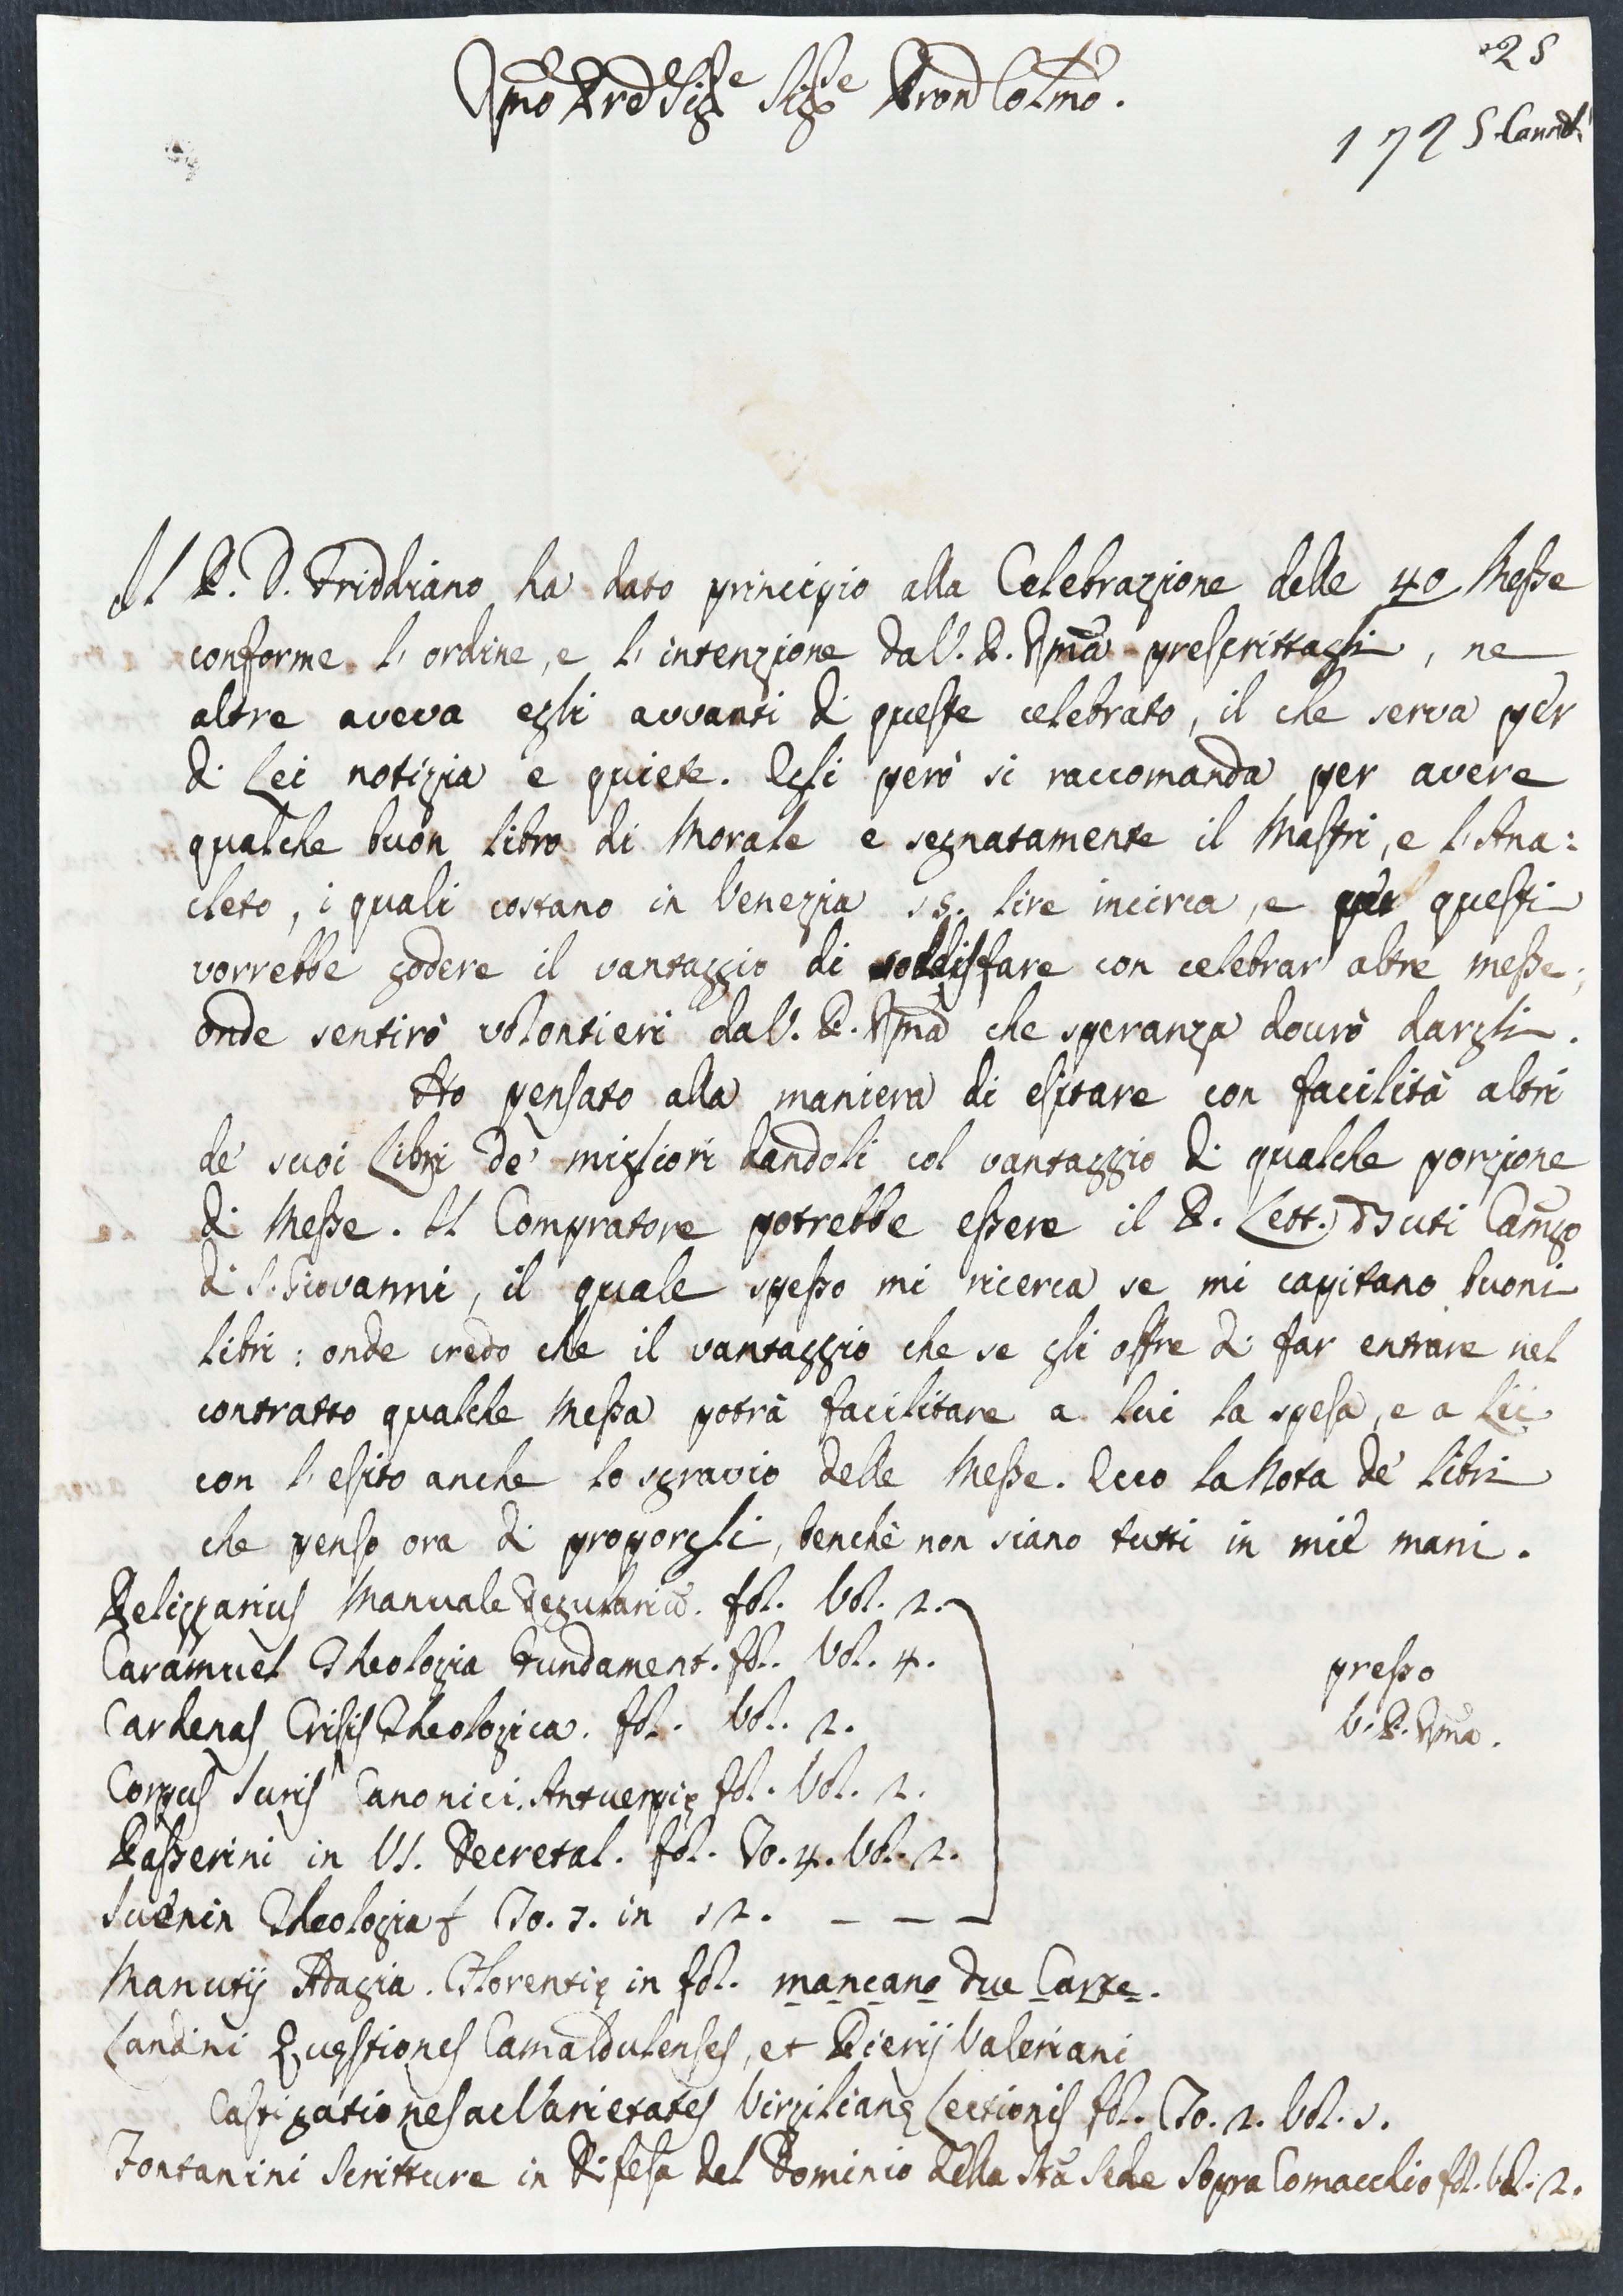 25
Rmo Prẽ Sigre Sigre Pron Colmo.
1725 Camald.
Il P. D. Friddiano ha dato principio alla Celebrazione delle 40 Messe
conforme l'ordine, e l'intenzione da V. P. Rma prescrittagli, ne
altre aveva egli avvanti di queste celebrato, il che serva per
di Lei notizia e quiete. Egli però si raccomanda per avere
qualche buon libro di Morale e segnatamente il Mastri, e l'Ana:
cleto, i quali costano in Venezia 55. lire incirca, e per questi
vorrebbe godere il vantaggio di soddisfare con celebrar altre messe;
onde sentirò volontieri da V. P. Rma che speranza dourò dargli.
Ho pensato alla maniera di esitare con facilità altri
de' suoi Libri de' migliori dandoli col vantaggio di qualche porzione
di Messe. Il Compratore potrebbe essere il P. Lett. Buti Camgo
di S. Giovanni, il quale spesso mi ricerca se mi capitano buoni
libri: onde credo che il vantaggio che se gli offre di far entrare nel
contratto qualche Messa potrà facilitare a lui la spesa, e a Lei
con l'esito anche lo sgravio delle Messe. Ecco la Nota de' libri
che penso ora di proporgli, benchè non siano tutti in mie mani.
Pelizzarius Manuale Regulariũ. fol. Vol. 2.
Caramuel Theologia Fundament. fol. Vol. 4.
presso
Cardenas Crisis Theologica. fol. Vol. 2.
V. P. Rma.
Corpus Iuris Canonici. Antuerpię fol. Vol. 2.
Passerini in VI. Decretal. fol. To. 4. Vol. 2.
Iuenin Theologia To. 7. in 12. - - -
Manutij Adagia. Florentię in fol. mancano due Carte.
Landini Quęstiones Camaldulenses, et Pierij Valeriani
Castigationes ac Varietates Virgilianę Lectionis fol. To. 2. Vol. 1.
Fontanini Scritture in Difesa del Dominio della Sta Sede Sopra Comacchio fol. Vol. 2.